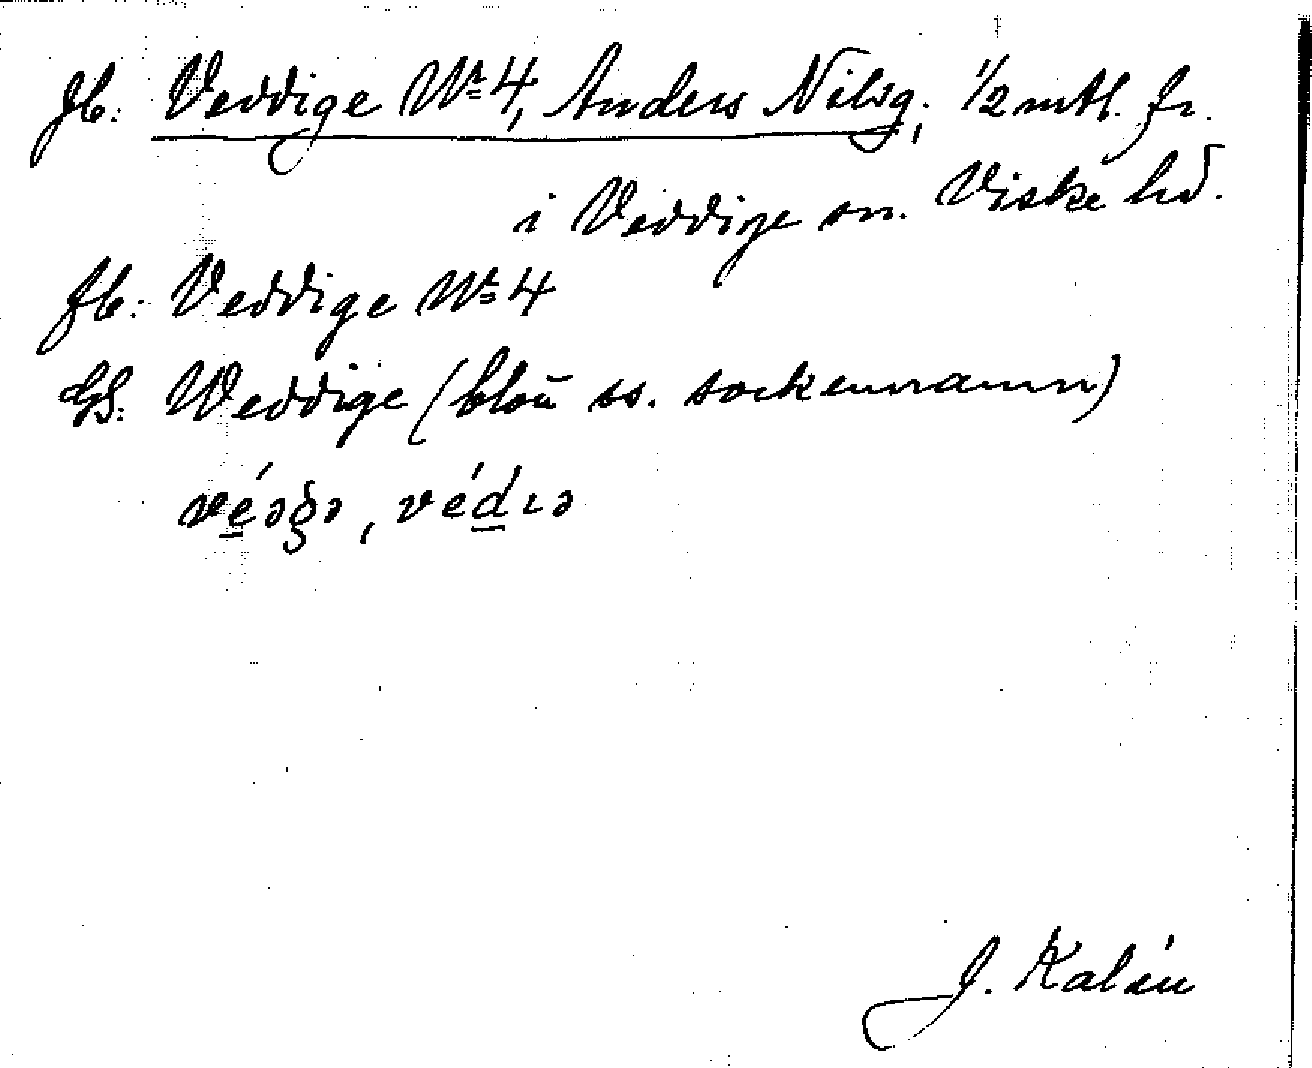 Jb: Veddige Nr 4, Anders Nilsg; 1/2 mtl. fr.
i Veddige sn. Viske hd.
Jb: Veddige Nr 4
GS: Weddige (blott ss. sockennamn)
J. Kalén